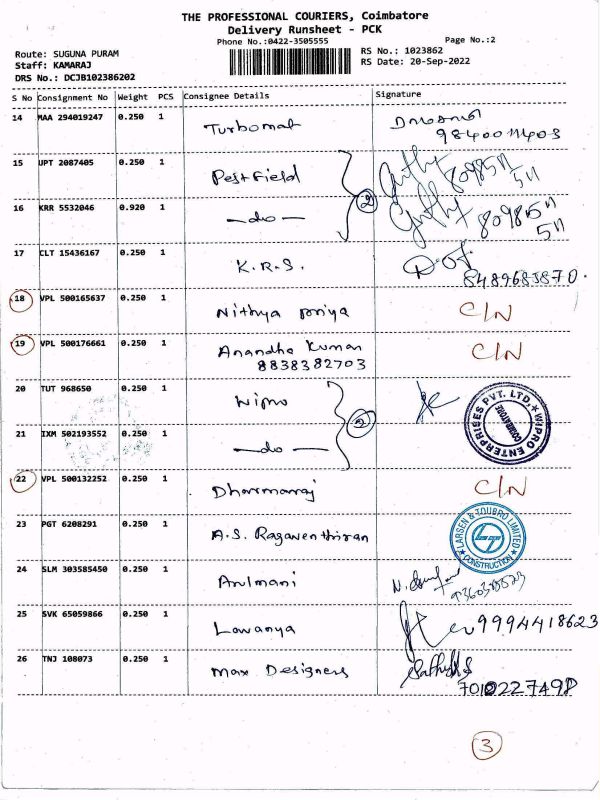 THE PROFESSIONAL COURIERS, Coimbatore
Delivery Runsheet - PCK
Phone No.:0422-3505555 Page No.:2
Route: SUGUNA PURAM RS No.: 1023862
Staff: KAMARAJ RS Date: 20-Sep-2022
DRS No.: DCJB102386202
S No Consignment No Weight PCS Consignee Details Signature
14 MAA 294019247 0.250 1 Turbomat
15 UPT 2087405 0.250 1 Pestfield
16 KRR 5532046 0.920 1 -do- 2
17 CLT 15436167 0.250 1 K.R.S.
8489683870.
18 VPL 500165637 0.250 1 Nithya priya C/N
19 VPL 500176661 0.250 1 Anandha Kumar C/N
8838382703
20 TUT 968650 0.250 1 Wipro WIPRO ENTERPRISES PVT. LTD. COIMBATORE
21 IXM 502193552 0.250 1 -do- 2
22 VPL 500132252 0.250 1 Dharmaraj C/N
23 PGT 6208291 0.250 1 A.S. Ragaventhiran LARSEN & TOUBRO LIMITED CONSTRUCTION
24 SLM 303585450 0.250 1 Arulmani
25 SVK 65059866 0.250 1 Lavanya 9994418623
26 TNJ 108073 0.250 1 Max Designers
7010227498
3